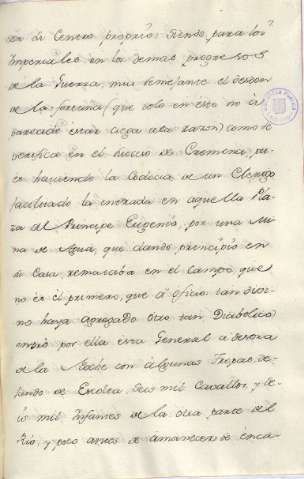 de Genero proprio; siendo, para los
Imperiales, en los demas progresos
de la Guerra, mui semejante el desden
de la fortuna (que solo en esto no a
parecido estar ciega a la razon) como se
verifica en el suceso de Cremona, pu
es haviendo la codicia de un Clerigo
facilitado la entrada en aquella Pla
za al Principe Eugenio, por una Mi
na de Agua, que dando principio en
su Casa, remataba en el campo, que
no es el primero, que à oficio tan
haya agregado otro tan Diabolico
por ella este General a desora
de la Noche con algunas Tropas, de
jando de Escolta, seis mil Cavallos, y se
is mil Infantes de la otra parte del
Rio, y poco antes de amanecer